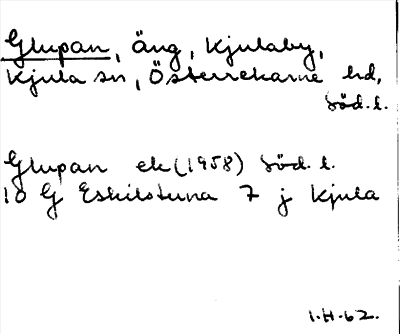 Glupan, äng, Kjulaby,
Kjula sn, Österrekarne hd,
Söd. l.
Glupan ek (1958) Söd. l.
10 G Eskilstuna 7 j Kjula
1.H.62.